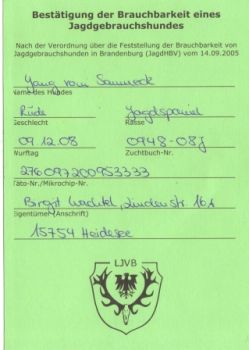 Bestätigung der Brauchbarkeit eines
Jagdgebrauchshundes
Nach der Verordnung über die Feststellung der Brauchbarkeit von
Jagdgebrauchshunden in Brandenburg (JagdHBV) vom 14.09.2005
Yang vom Sauneck
Name des Hundes
Rüde Jagdspaniel
Geschlecht Rasse
09.12.08 0948-08J
Wurftag Zuchtbuch-Nr.
276097200953333
Täto-Nr./Mikrochip-Nr.
Birgit Wachtel, Lindenstr. 16a
Eigentümer (Anschrift)
15754 Heidesee
LJVB